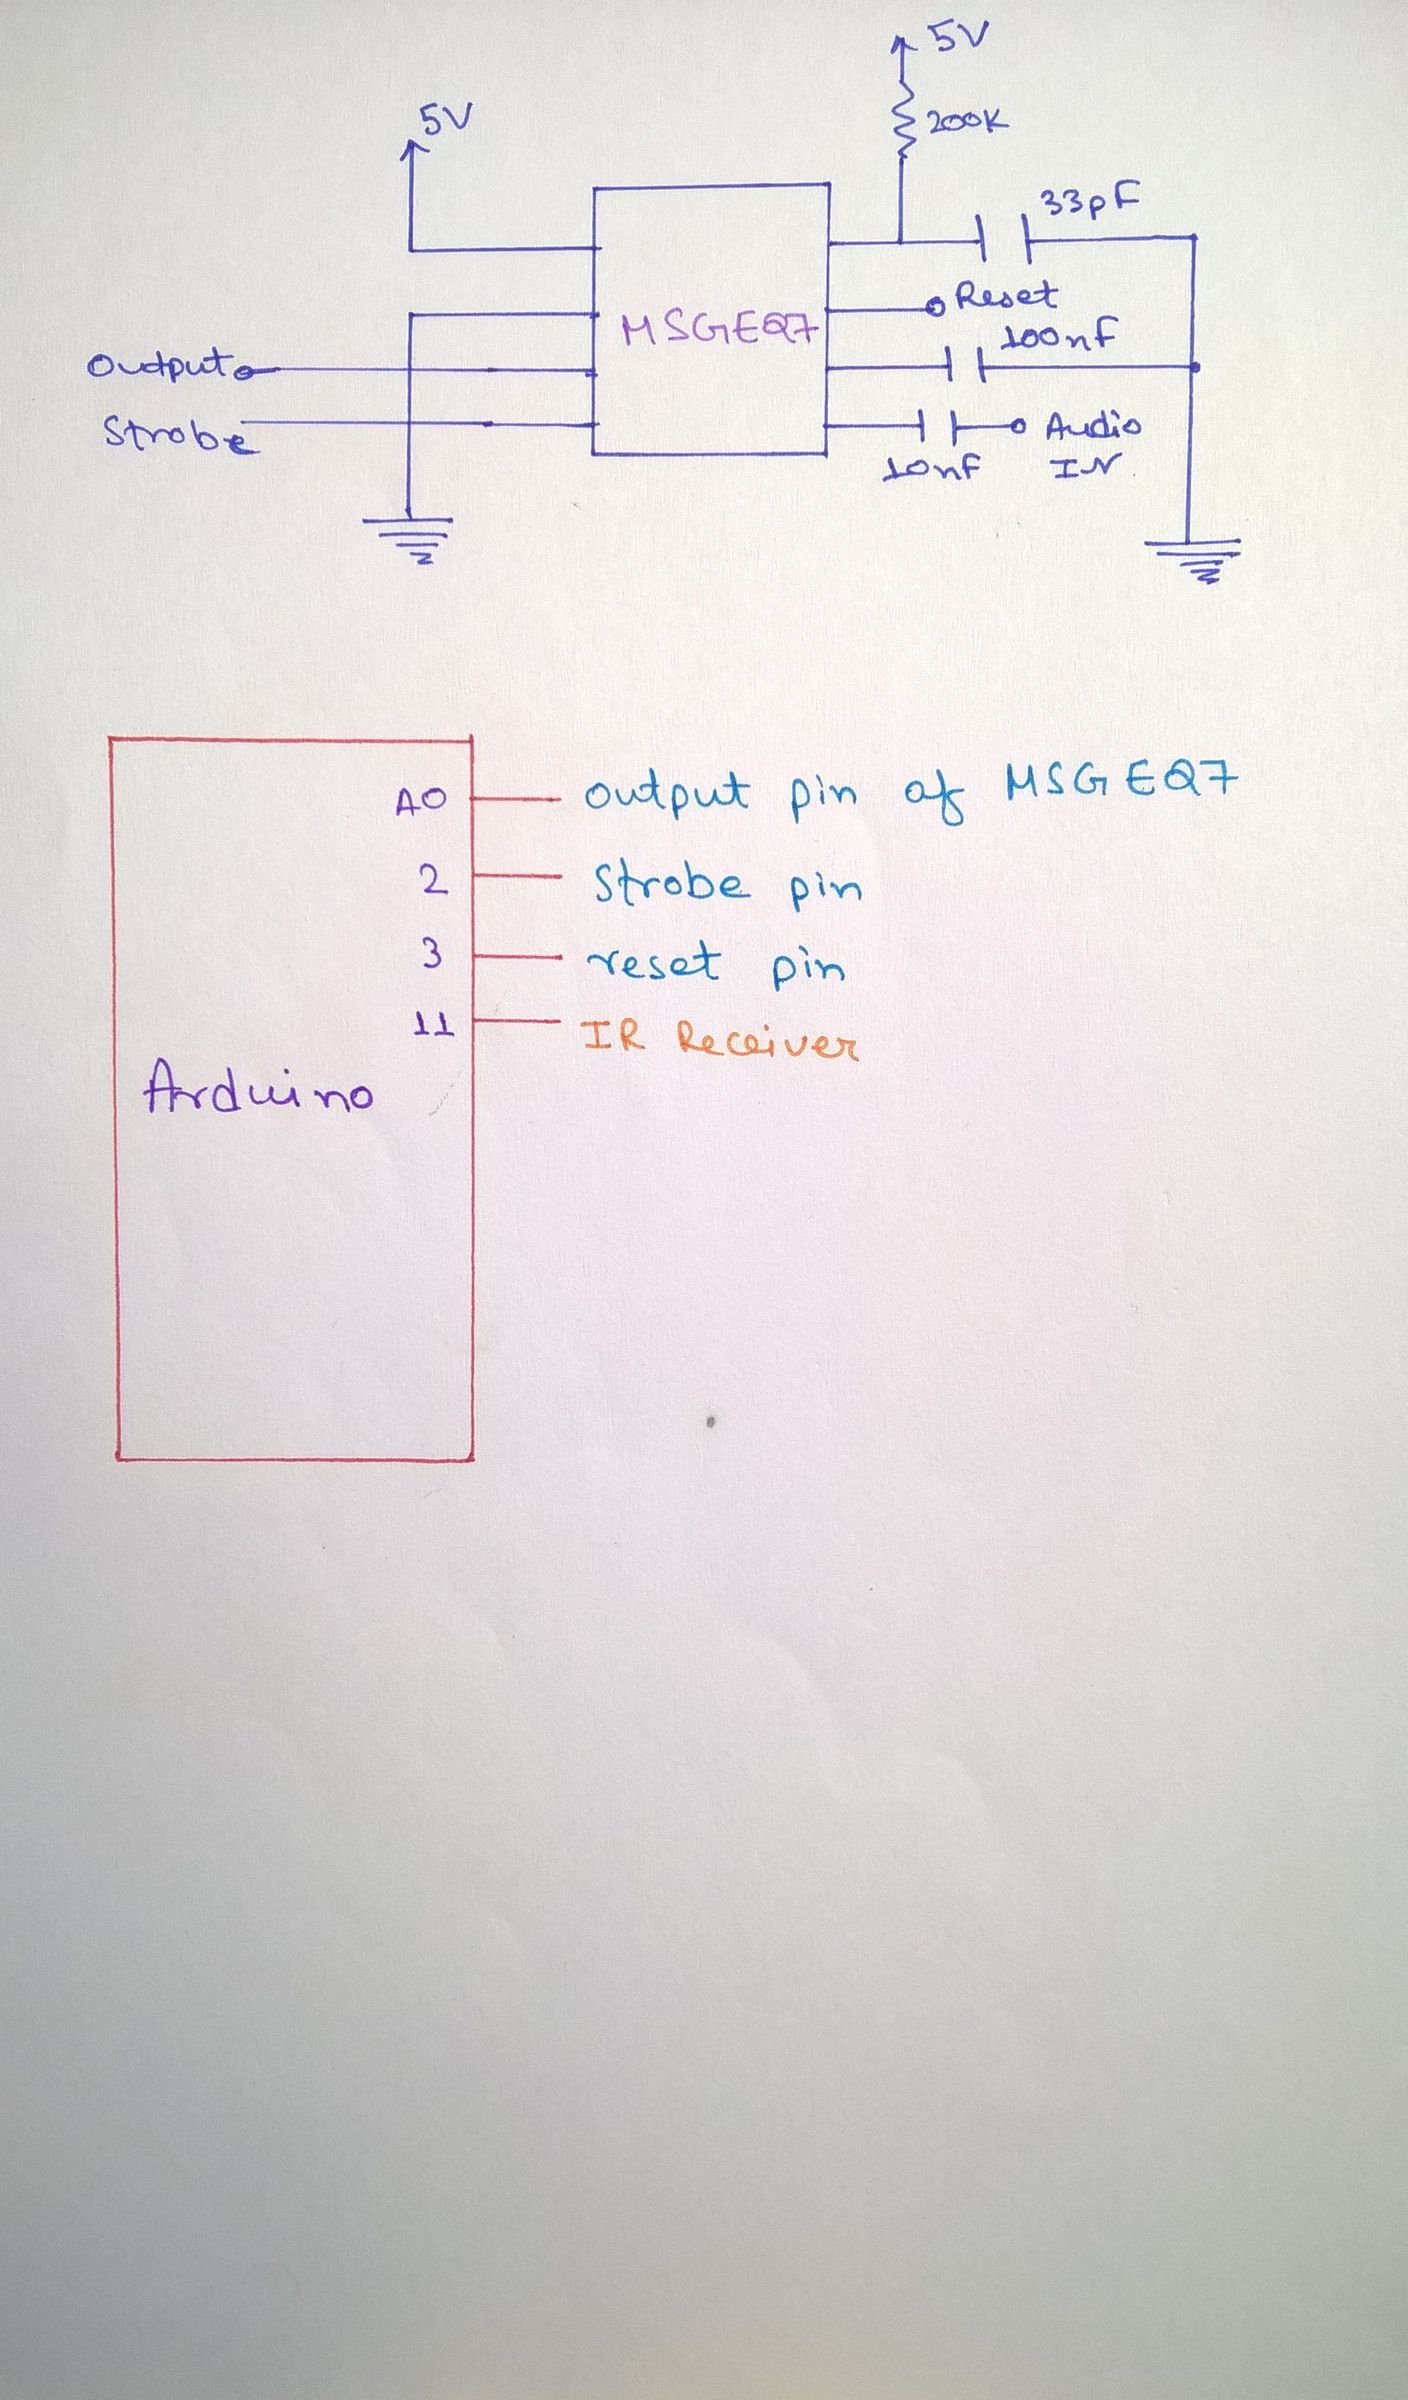 5V
5V
200K
33pF
MSGEQ7
Reset
100nF
Output
Strobe
10nF
Audio
IN
A0
output pin of MSGEQ7
2
Strobe pin
3
reset pin
11
IR Receiver
Arduino